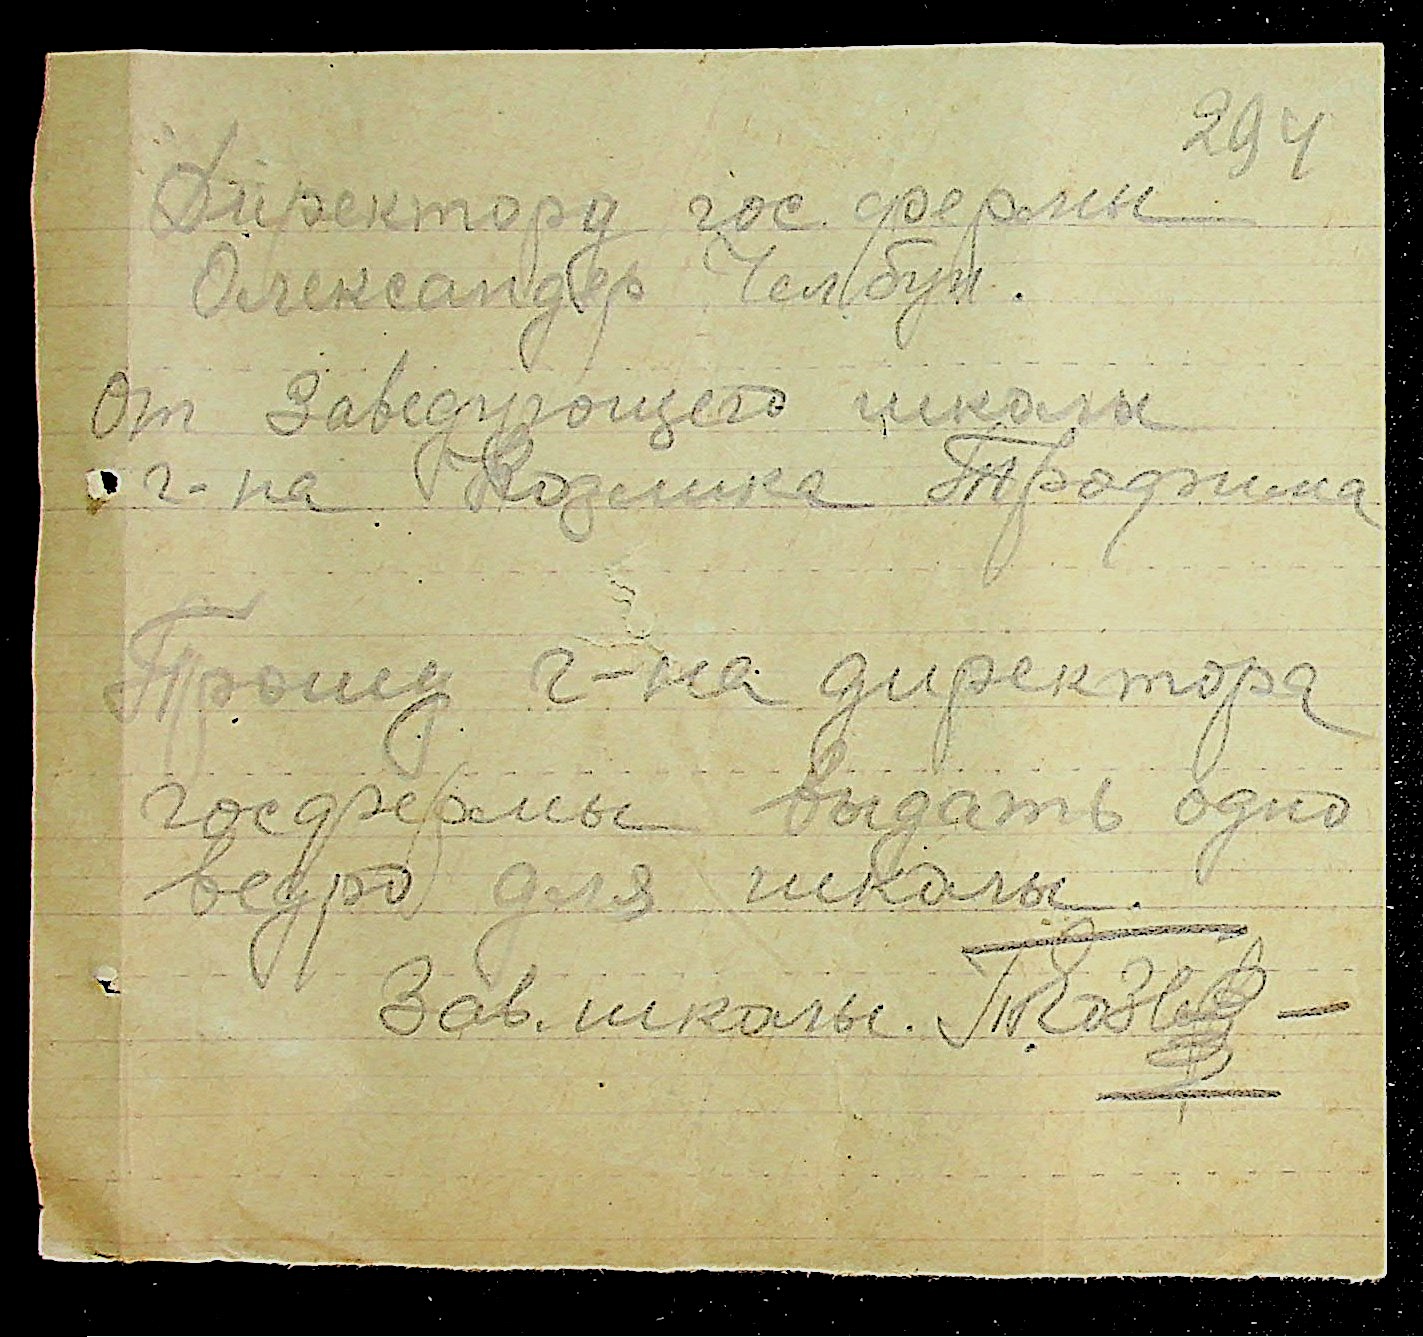 294
Директору гос. фермы
Олександер Челбун.
От Заведующего школы
г-на Козлика Трофима
Прошу г-на директора
госфермы выдать одно
ведро для школы.
Зав. школы.